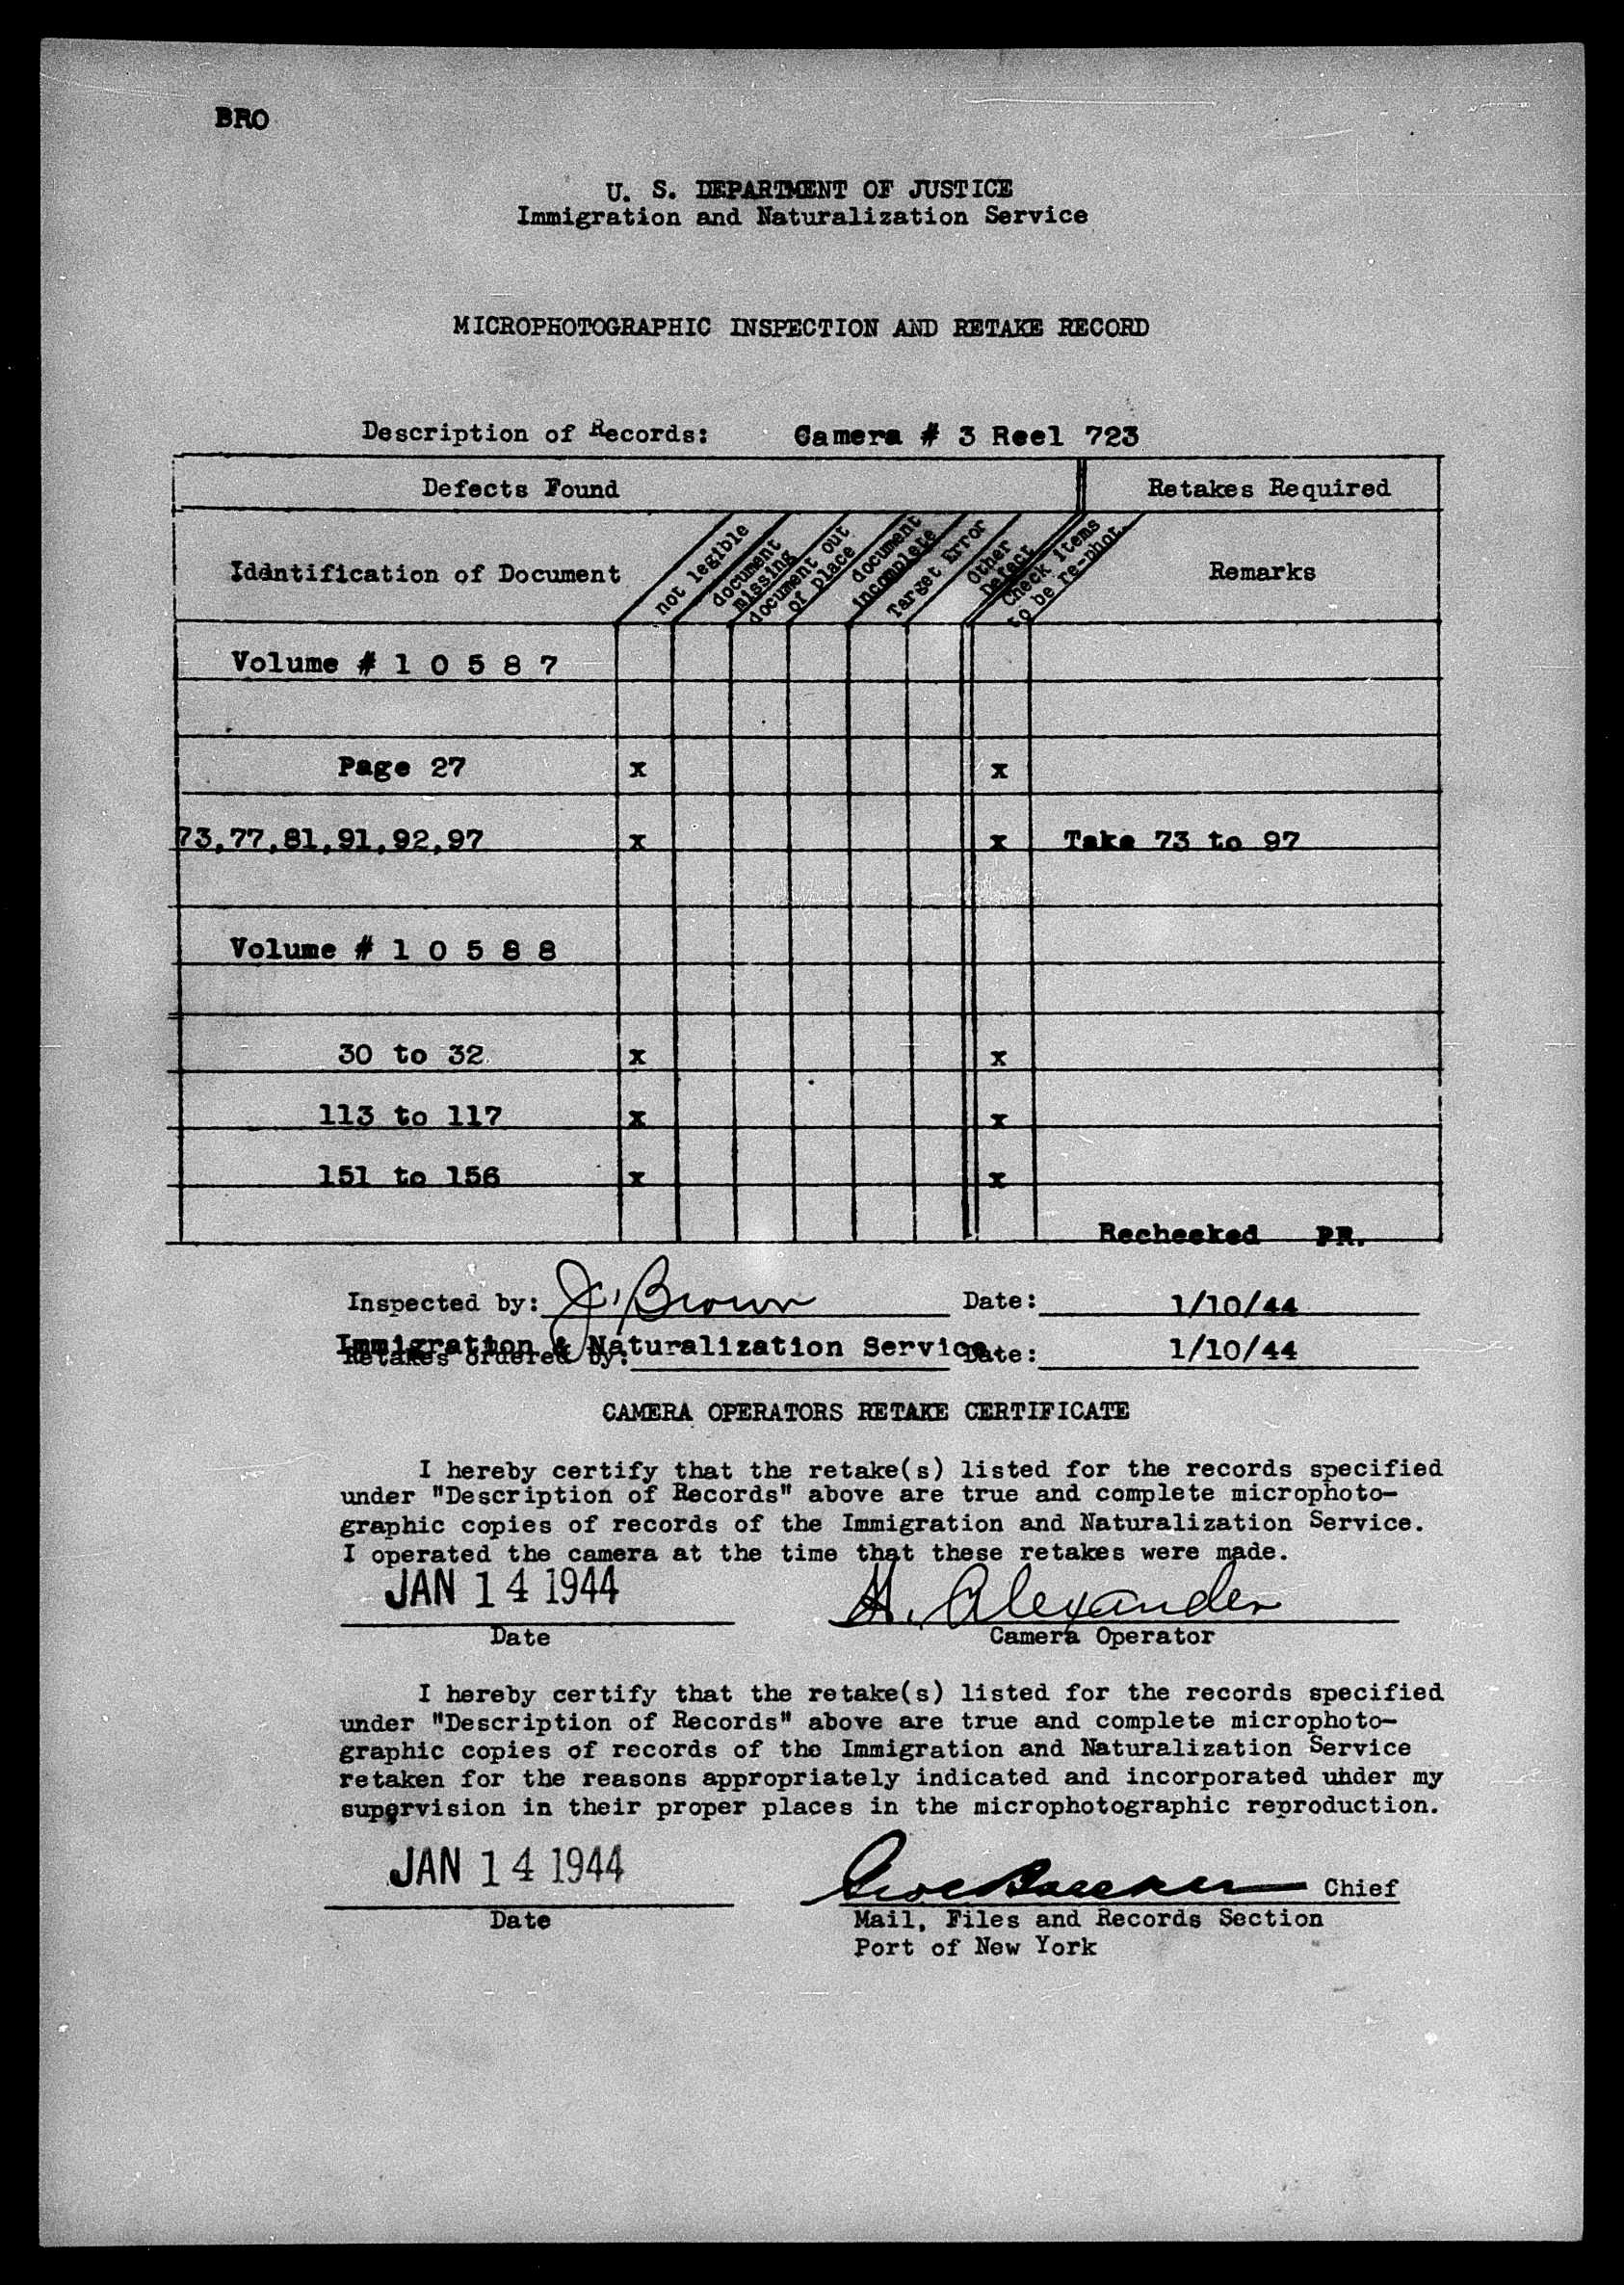 BRO
U. S. DEPARTMENT OF JUSTICE
Immigration and Naturalization Service
MICROPHOTOGRAPHIC INSPECTION AND RETAKE RECORD
Description of Records: Camera # 3 Reel 723
Defects Found Retakes Required
Identification of Document
not legible
document missing
document out of place
document incomplete
Target Error
Other Defect
Check items to be re-phot.
Remarks
Volume # 1 0 5 8 7
Page 27 x x
73,77,81,91,92,97 x x Take 73 to 97
Volume # 1 0 5 8 8
30 to 32 x x
113 to 117 x x
151 to 156 x x
Rechecked PR.
Inspected by: J. Brown Date: 1/10/44
Immigration & Naturalization Service
Retakes ordered by: Date: 1/10/44
CAMERA OPERATORS RETAKE CERTIFICATE
I hereby certify that the retake(s) listed for the records specified
under "Description of Records" above are true and complete microphoto-
graphic copies of records of the Immigration and Naturalization Service.
I operated the camera at the time that these retakes were made.
JAN 14 1944 H. Alexander
Date Camera Operator
I hereby certify that the retake(s) listed for the records specified
under "Description of Records" above are true and complete microphoto-
graphic copies of records of the Immigration and Naturalization Service
retaken for the reasons appropriately indicated and incorporated under my
supervision in their proper places in the microphotographic reproduction.
JAN 14 1944 Chief
Date Mail, Files and Records Section
Port of New York